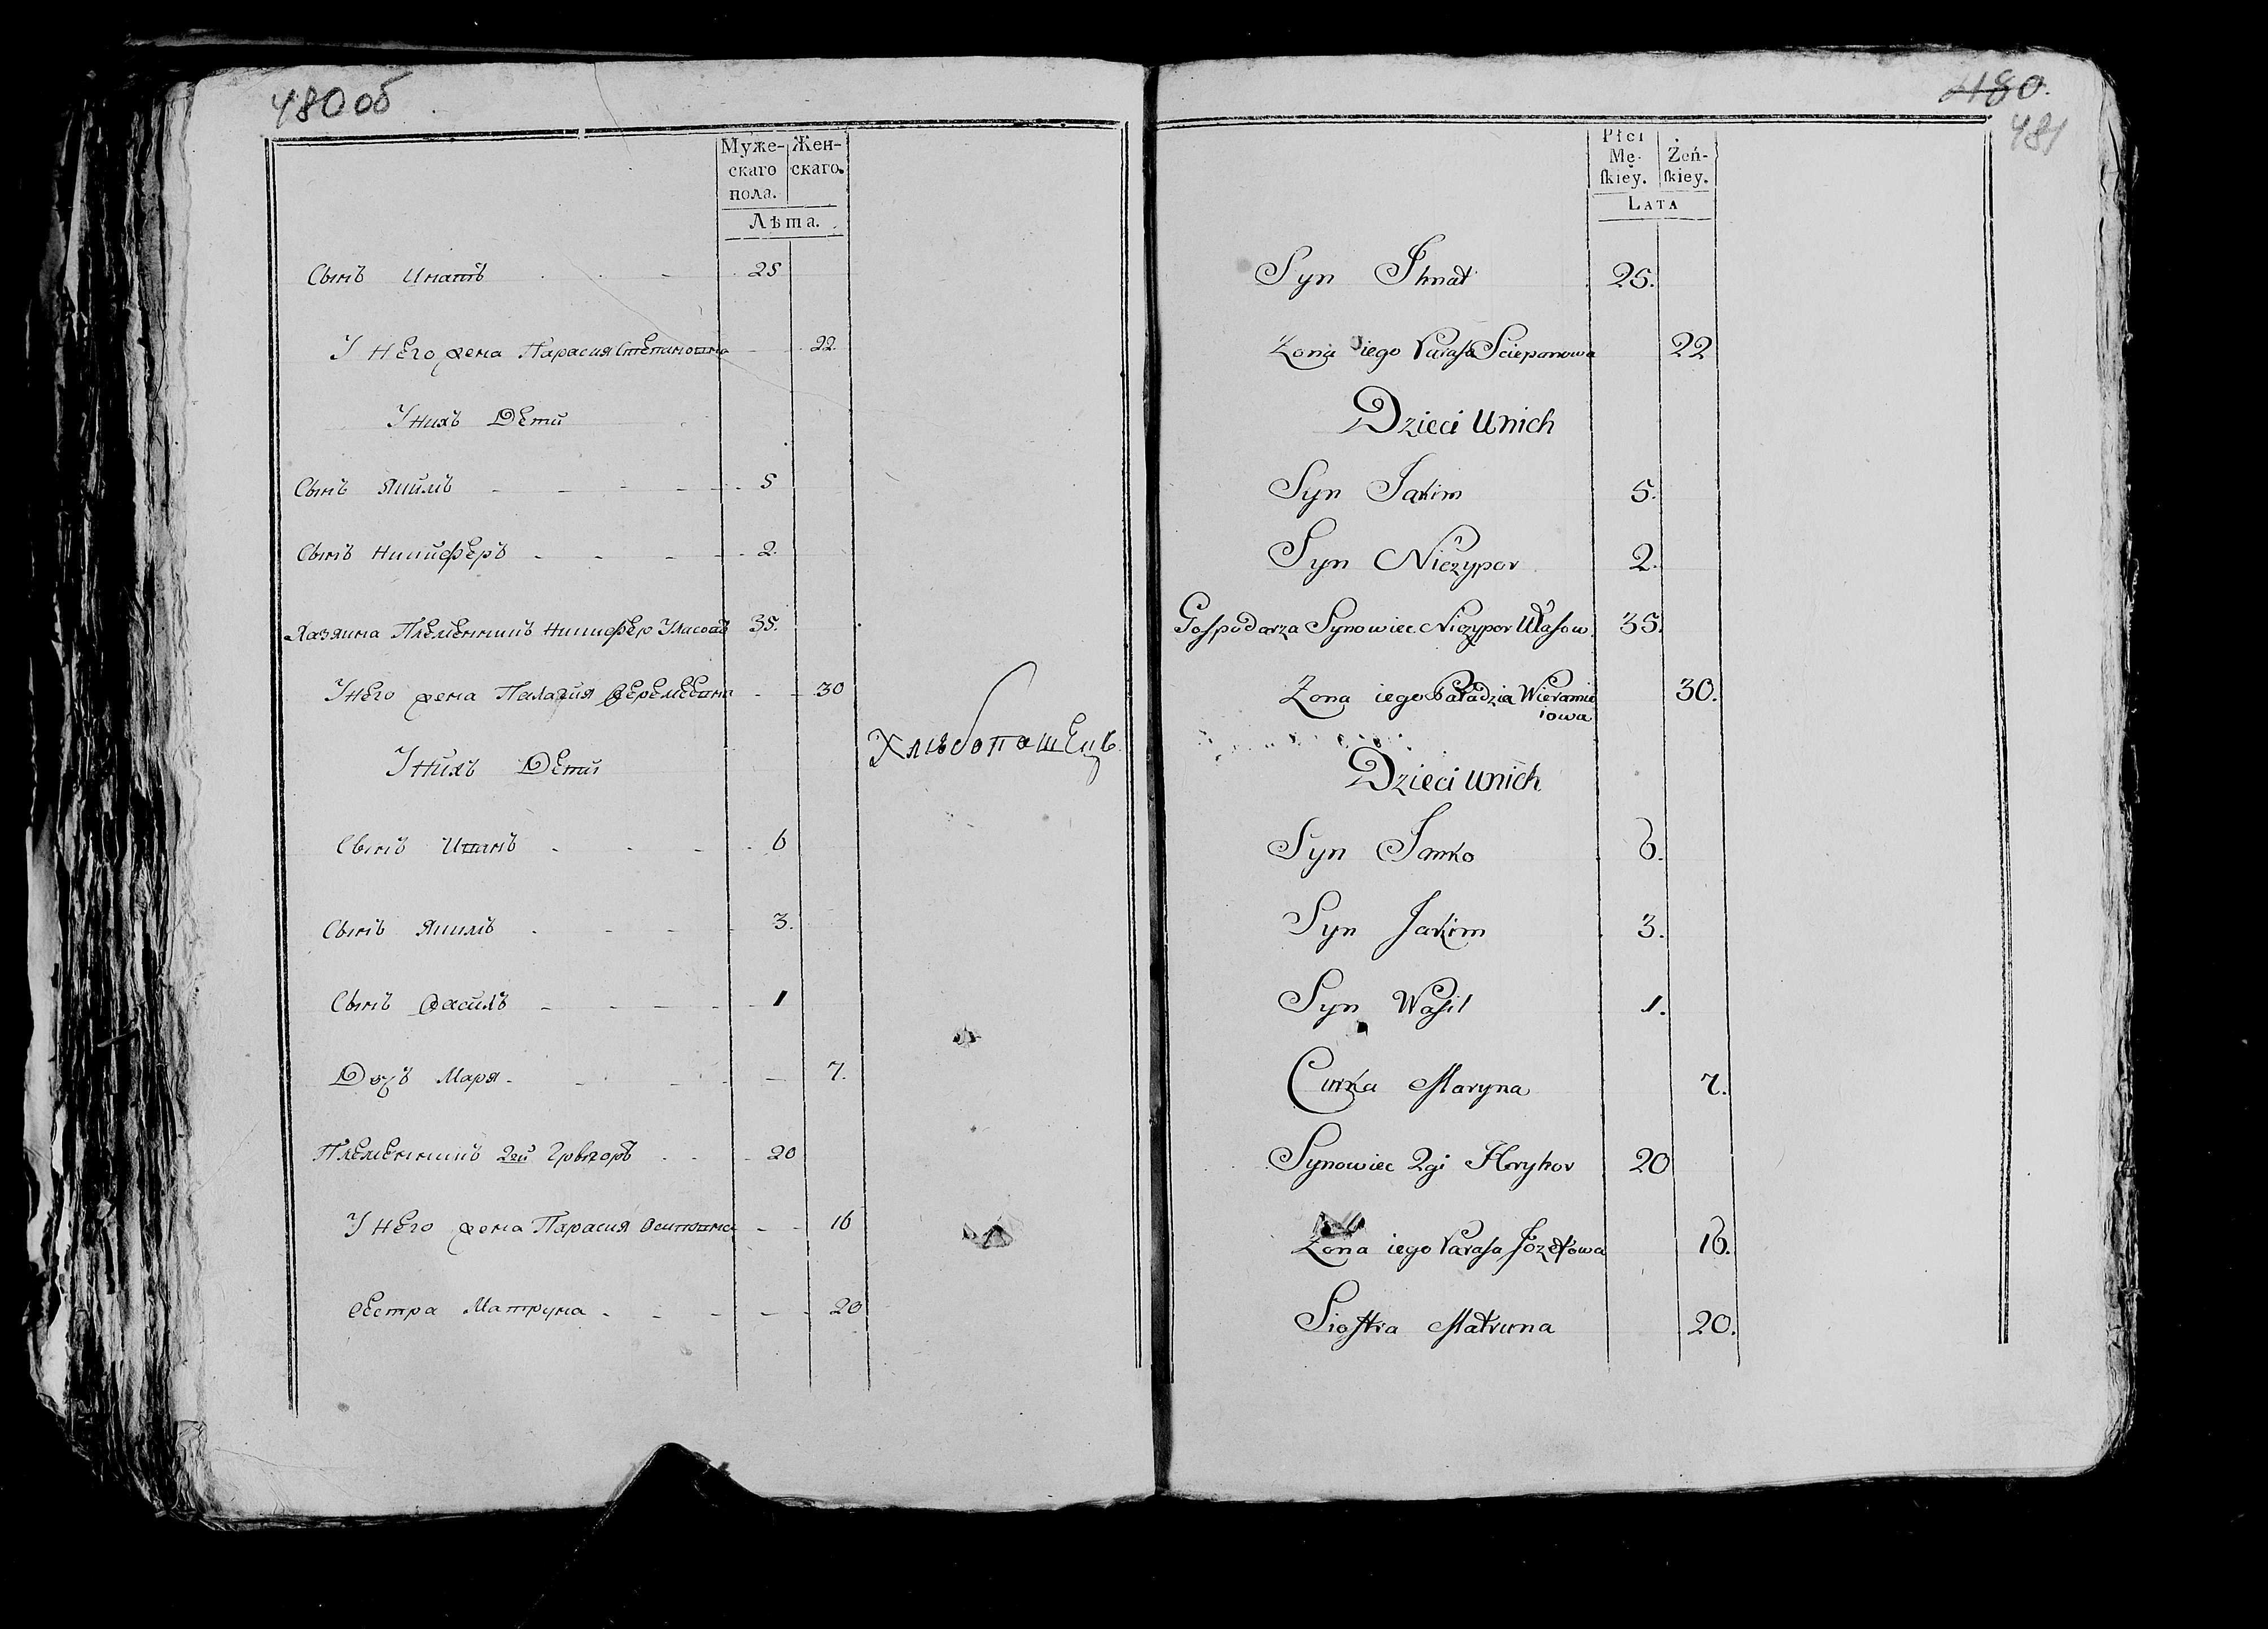 480об
Муже- Жен-
скаго скаго.
пола.
Лѣта.
Сынъ Игнатъ 25
У Него жена Парасия Степанов 22.
У нихъ Дети
Сынъ Якимъ 5
Сынъ Никиферъ 2.
Хазяина Племенникъ Никифер Уласовъ 35.
У Него жена Палагия 30
У нихъ Дети
Хлѣбопашецъ
Сынъ Иванъ 6
Сынъ Якимъ 3.
Сынъ Василъ 1
Дочъ Маря 7.
Племенникъ 2ой Григоръ 20
У Него жена Парасия 16
Сестра Матруна 20
480.
481
Płci
Mę- Żeń-
ſkiey. ſkiey.
LATA
Syn Ihnat 25.
Zona iego Parasa Sciepanowa 22
Dzieci Unich
Syn Jakim 5.
Syn Niczypor 2.
Gospodarza Synowiec Niczypor Ułasow 35.
Zona iego Paładzia Wieramie
iowa 30.
Dzieci unich
Syn Janko 6.
Syn Jakim 3.
Syn Wasil 1.
Curka Maryna 7.
Synowiec 2gi Hryhor 20
Zona iego Parasa Jozefowa 16.
Siostra Matruna 20.